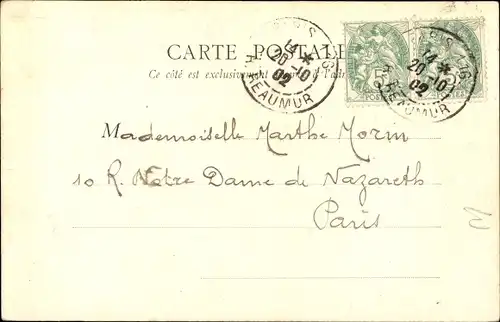 CARTE POSTALE
Ce côté est exclusivement
PARIS 76
14 *
20 -10
02
R. REAUMUR
PARIS 76
14 *
20 -10
02
R. REAUMUR
5
POSTES
Mademoiselle Marthe Morin
10 R. Notre Dame de Nazareth
Paris